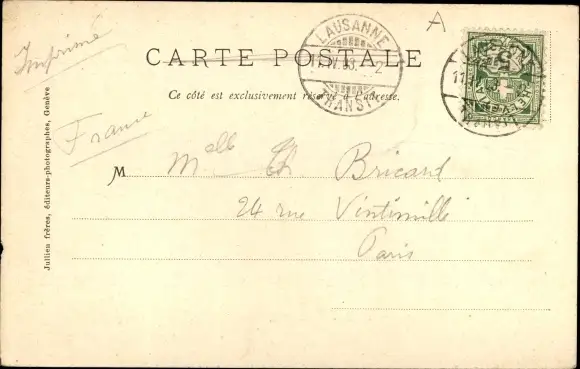 Imprimé
A
CARTE POSTALE
LAUSANNE
TRANSIT
Ce côté est exclusivement réservé à l'adresse.
France
M Melle Ch Bricard
24 rue Vintimille
Paris
Jullien frères, éditeurs-photographes, Genève